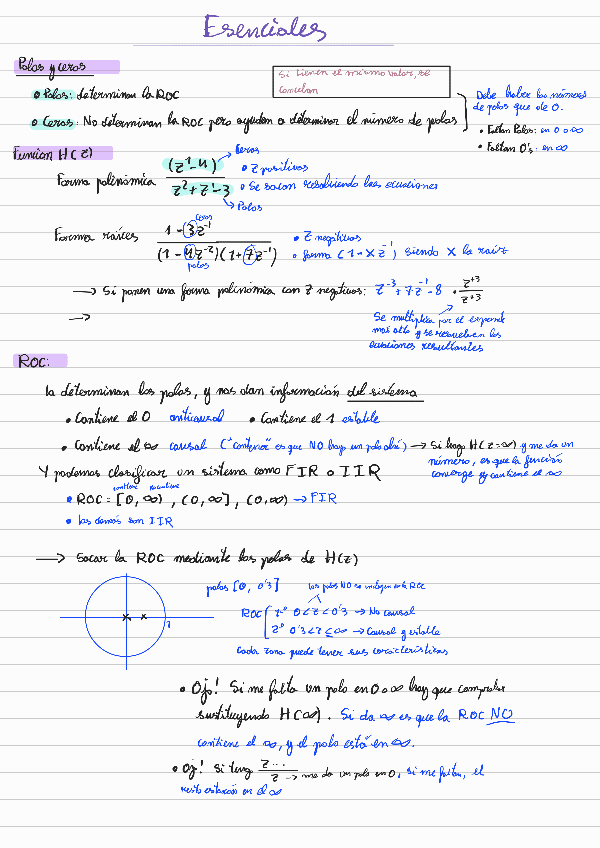 Esenciales
Polos y ceros
Si tienen el mismo valor, se
cancelan
• Polos: determinan la ROC
• Ceros: No determinan la ROC pero ayudan a determinar el número de polos
Debe haber los números
de polos que de 0.
• Faltan Polos: en 0 o ∞
• Faltan 0's: en ∞
Función H(z)
Forma polinómica (z¹-4) / z²+z¹-3
→ Ceros
→ Polos
• z positivos
• Se sacan resolviendo las ecuaciones
Forma raíces 1-3z⁻¹ / (1-4z⁻²)(1+7z⁻¹)
ceros
polos
• z negativos
• forma (1-Xz⁻¹) siendo X la raíz
→ Si ponen una forma polinómica con z negativos: z⁻³+7z⁻¹-8 · z⁺³/z⁺³
Se multiplica por el exponente
más alto y se resuelven las
ecuaciones resultantes
→
ROC:
La determinan los polos, y nos dan información del sistema
• Contiene el 0 anticausal • Contiene el 1 estable
• Contiene el ∞ causal ("contener" es que NO haya un polo ahí) → Si hago H(z=∞) y me da un
número, es que la función
converge y contiene el ∞
Y podemos clasificar un sistema como FIR o IIR
contiene no contiene
• ROC = [0,∞), (0,∞], (0,∞) → FIR
• las demás son IIR
→ Sacar la ROC mediante los polos de H(z)
1
polos [0, 0'3]
los polos NO se incluyen en la ROC
ROC 1º 0<z<0'3 → No causal
2º 0'3<z≤∞ → Causal y estable
Cada zona puede tener sus características
• Ojo! Si me falta un polo en 0 o ∞ hay que comprobar
sustituyendo H(∞). Si da ∞ es que la ROC NO
contiene el ∞, y el polo está en ∞.
• Oj! Si tengo z... / z → me da un polo en 0, si me faltan, el
resto estarán en el ∞